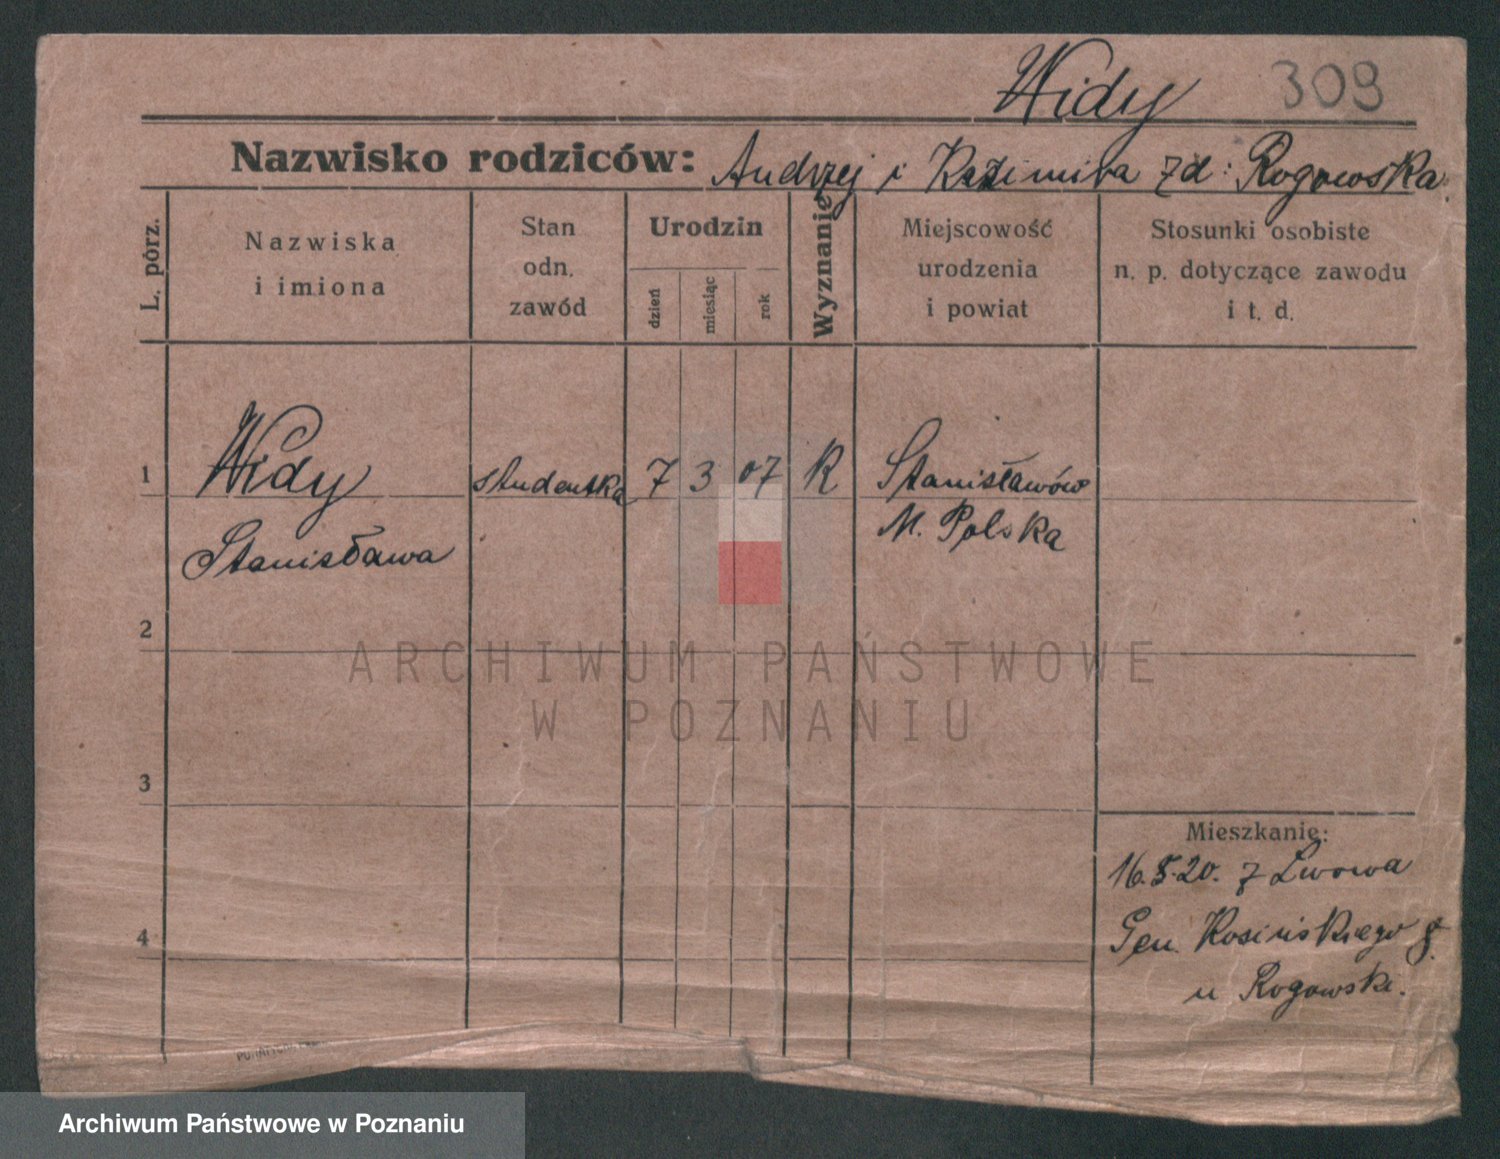 Widy 309
Nazwisko rodziców: Andrzej i Kazimira zd: Rogowska.
L. pórz.
Nazwiska
i imiona
Stan
odn.
zawód
Urodzin
dzień
miesiąc
rok
Wyznanie
Miejscowość
urodzenia
i powiat
Stosunki osobiste
n. p. dotyczące zawodu
i t. d.
1 Widy studentka 7 3 07 R Stanisławów
Stanisława M. Polska
2
ARCHIWUM PAŃSTWOWE
W POZNANIU
3
Mieszkanie:
16.8.20. z Lwowa
4 Gen. Kosińskiego 8.
u Rogowski.
Archiwum Państwowe w Poznaniu